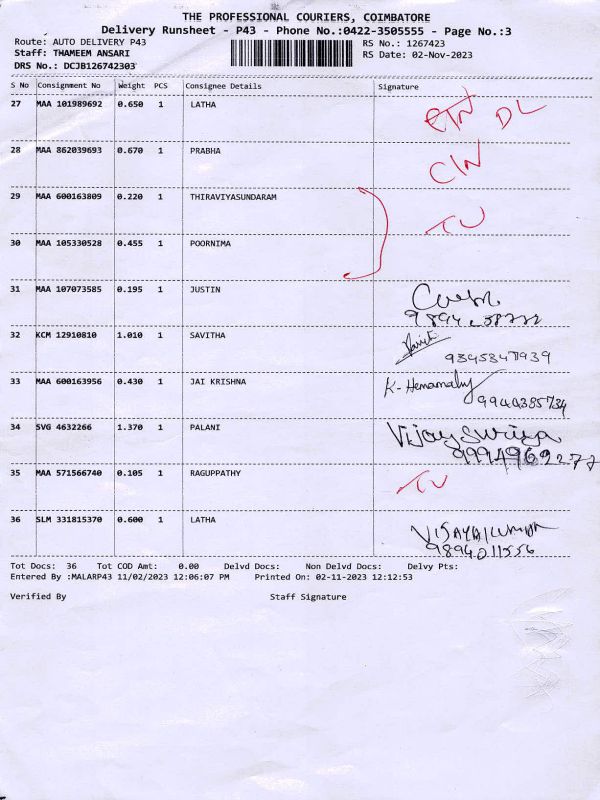 THE PROFESSIONAL COURIERS, COIMBATORE
Delivery Runsheet - P43 - Phone No.:0422-3505555 - Page No.:3
Route: AUTO DELIVERY P43 RS No.: 1267423
Staff: THAMEEM ANSARI RS Date: 02-Nov-2023
DRS No.: DCJB126742303
S No Consignment No Weight PCS Consignee Details Signature
27 MAA 101989692 0.650 1 LATHA DL
28 MAA 862039693 0.670 1 PRABHA CIN
29 MAA 600163809 0.220 1 THIRAVIYASUNDARAM
30 MAA 105330528 0.455 1 POORNIMA
31 MAA 107073585 0.195 1 JUSTIN
32 KCM 12910810 1.010 1 SAVITHA
9345347939
33 MAA 600163956 0.430 1 JAI KRISHNA
9944385734
34 SVG 4632266 1.370 1 PALANI Vijay suriya
35 MAA 571566740 0.105 1 RAGUPPATHY
36 SLM 331815370 0.600 1 LATHA VIJAYAKUMAR
9894011556
Tot Docs: 36 Tot COD Amt: 0.00 Delvd Docs: Non Delvd Docs: Delvy Pts:
Entered By :MALARP43 11/02/2023 12:06:07 PM Printed On: 02-11-2023 12:12:53
Verified By Staff Signature